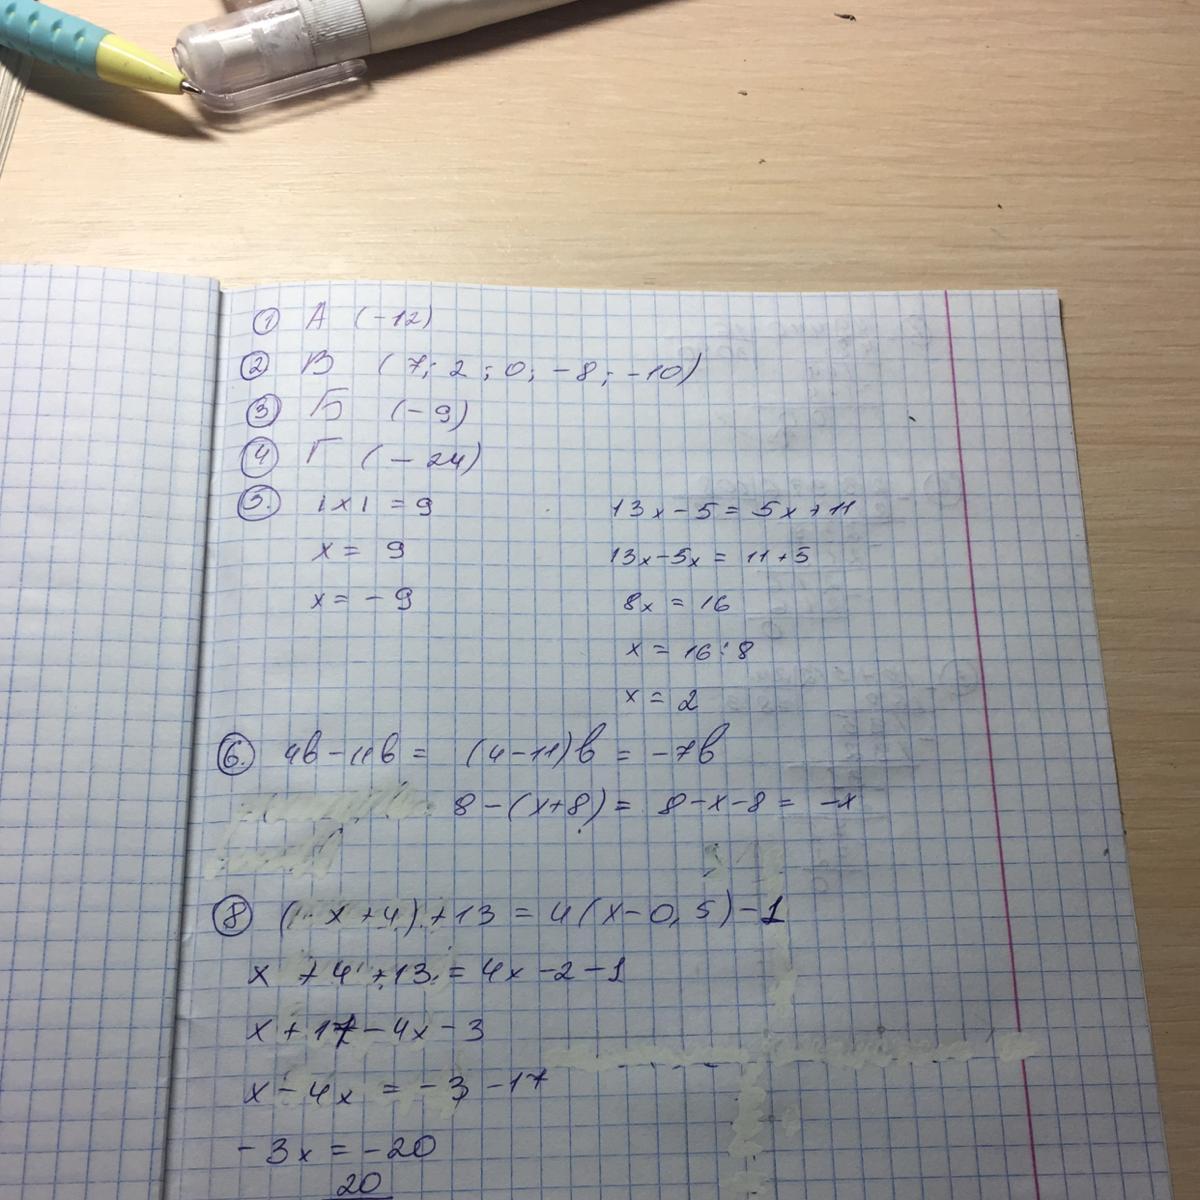 ① А (-12)
② В (7; 2; 0; -8; -10)
③ Б (-9)
④ Г (-24)
⑤. |x| = 9
x = 9
x = -9
13x - 5 = 5x + 11
13x - 5x = 11 + 5
8x = 16
x = 16 : 8
x = 2
⑥. 4b - 11b = (4 - 11)b = -7b
8 - (x + 8) = 8 - x - 8 = -x
⑧ (x + 4) + 13 = 4(x - 0,5) - 1
x + 4 + 13 = 4x - 2 - 1
x + 17 - 4x - 3
x - 4x = -3 - 17
-3x = -20
20